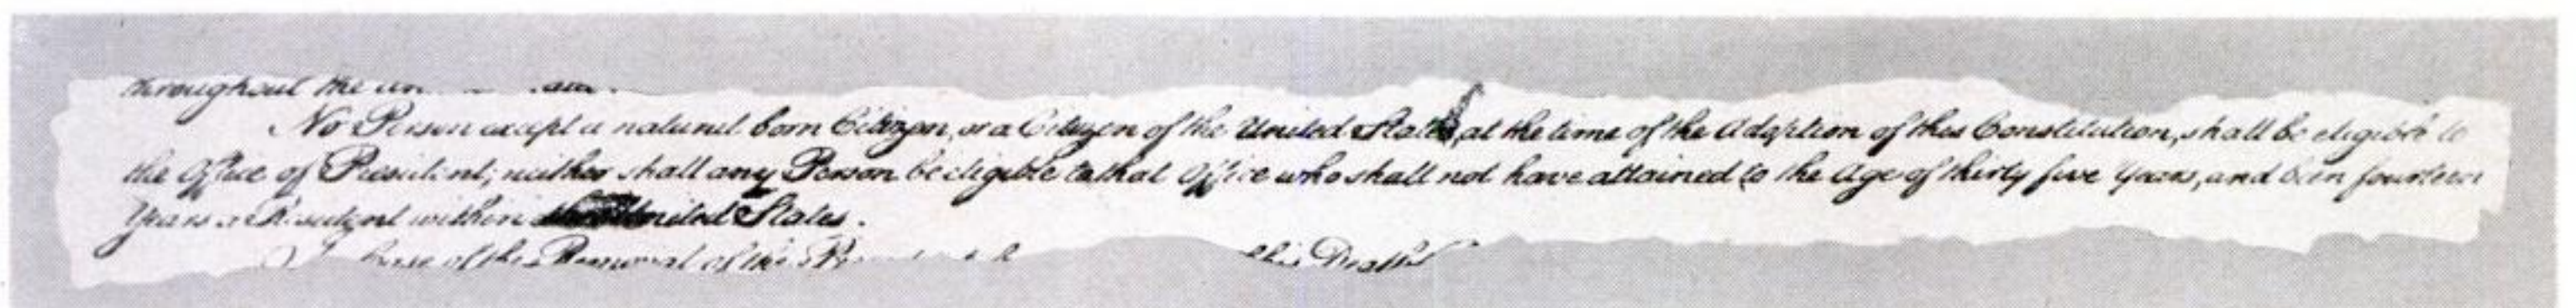 throughout the
No Person except a natural born Citizen, or a Citizen of the United States, at the time of the Adoption of this Constitution, shall be eligible to
the Office of President; neither shall any Person be eligible to that Office who shall not have attained to the Age of thirty five Years, and been fourteen
Years a Resident within the United States.
Case of the Removal of the his Death